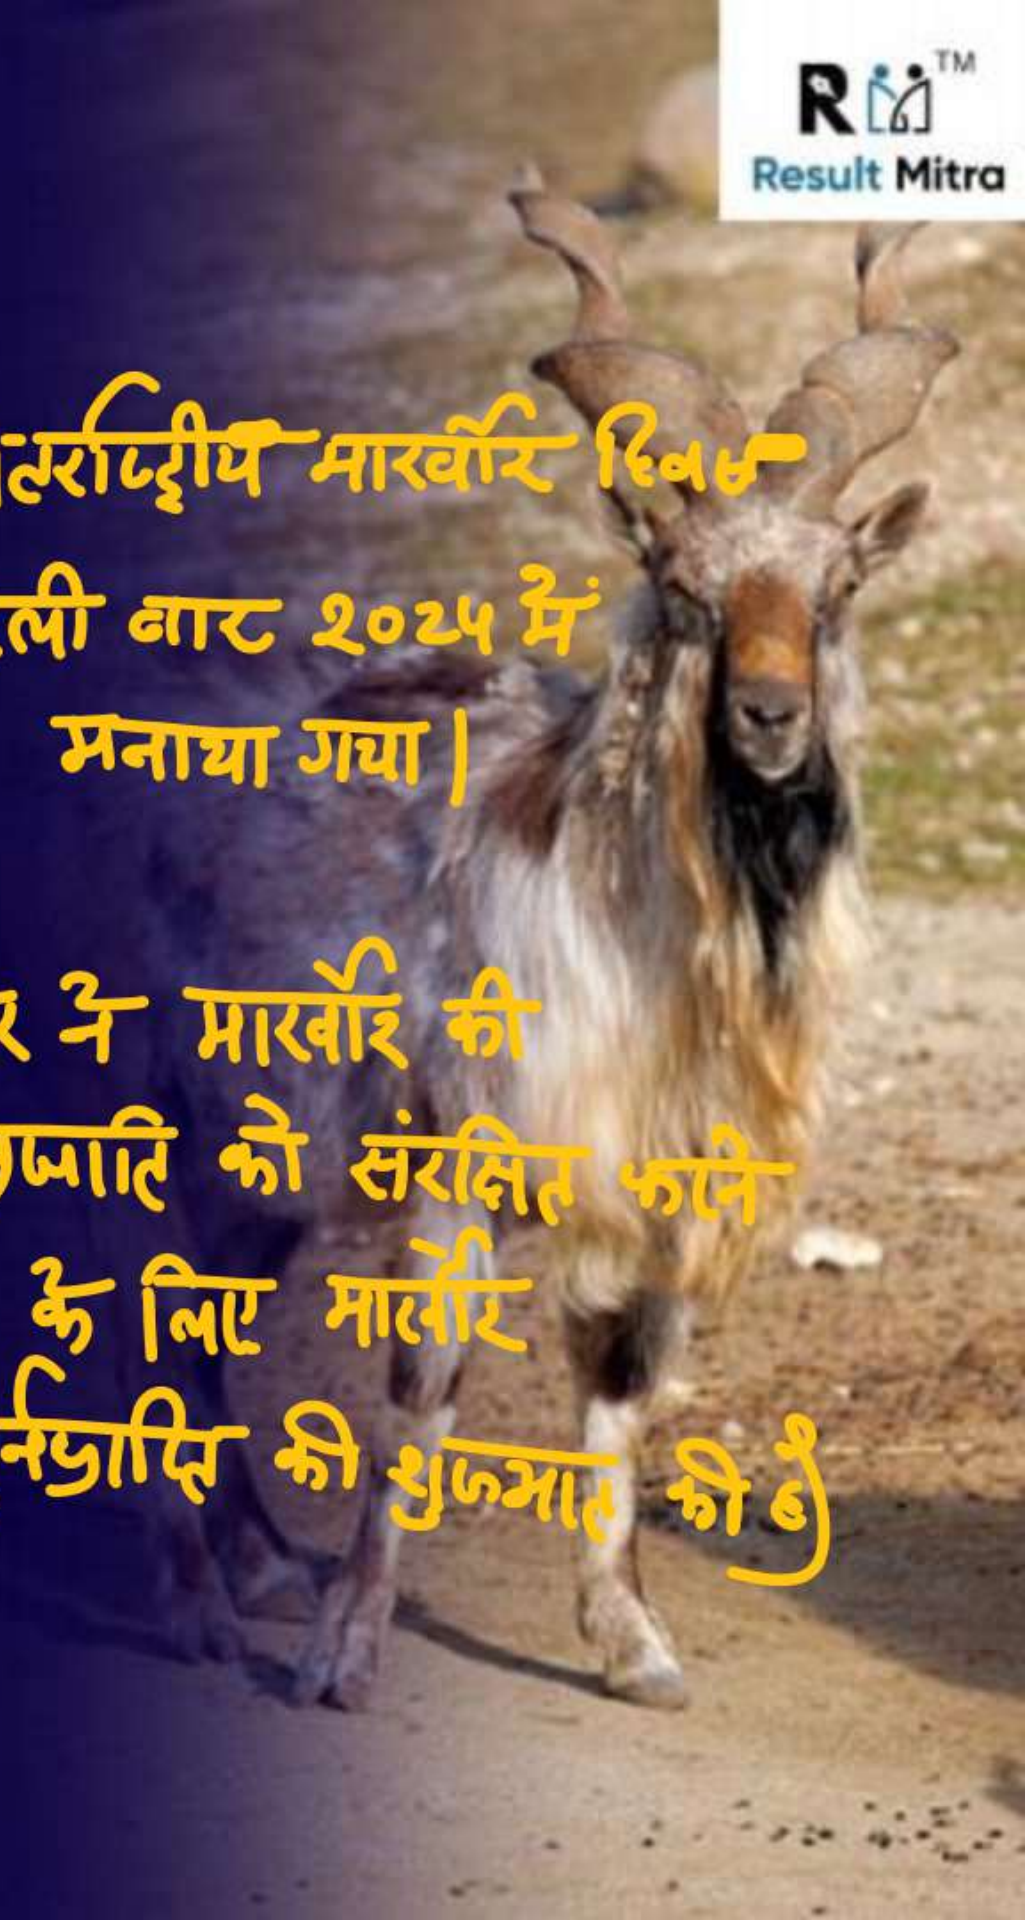 R TM
Result Mitra
तर्राष्ट्रीय मारखोर दिवस
ली बार २०२५ में
मनाया गया |
र ने मारखोर की
प्रजाति को संरक्षित करने
के लिए मारखोर
की शुरुआत की है